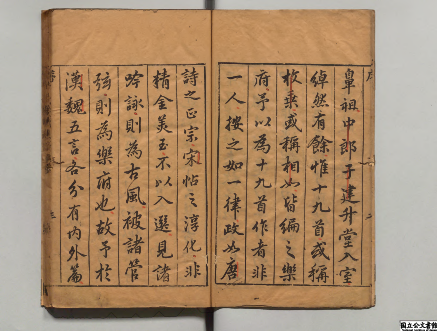 序
二
鼻祖中郎子建升堂入室
綽然有餘惟十九首或稱
枚乘或稱相如皆編之樂
府予以為十九首作者非
一人按之如一律政如唐
詩之正宗宋帖之淳化非
精金美玉不以入選見諸
吟詠則為古風被諸管
弦則為樂府也故予於
漢魏五言各分有内外篇
三
国立公文書館